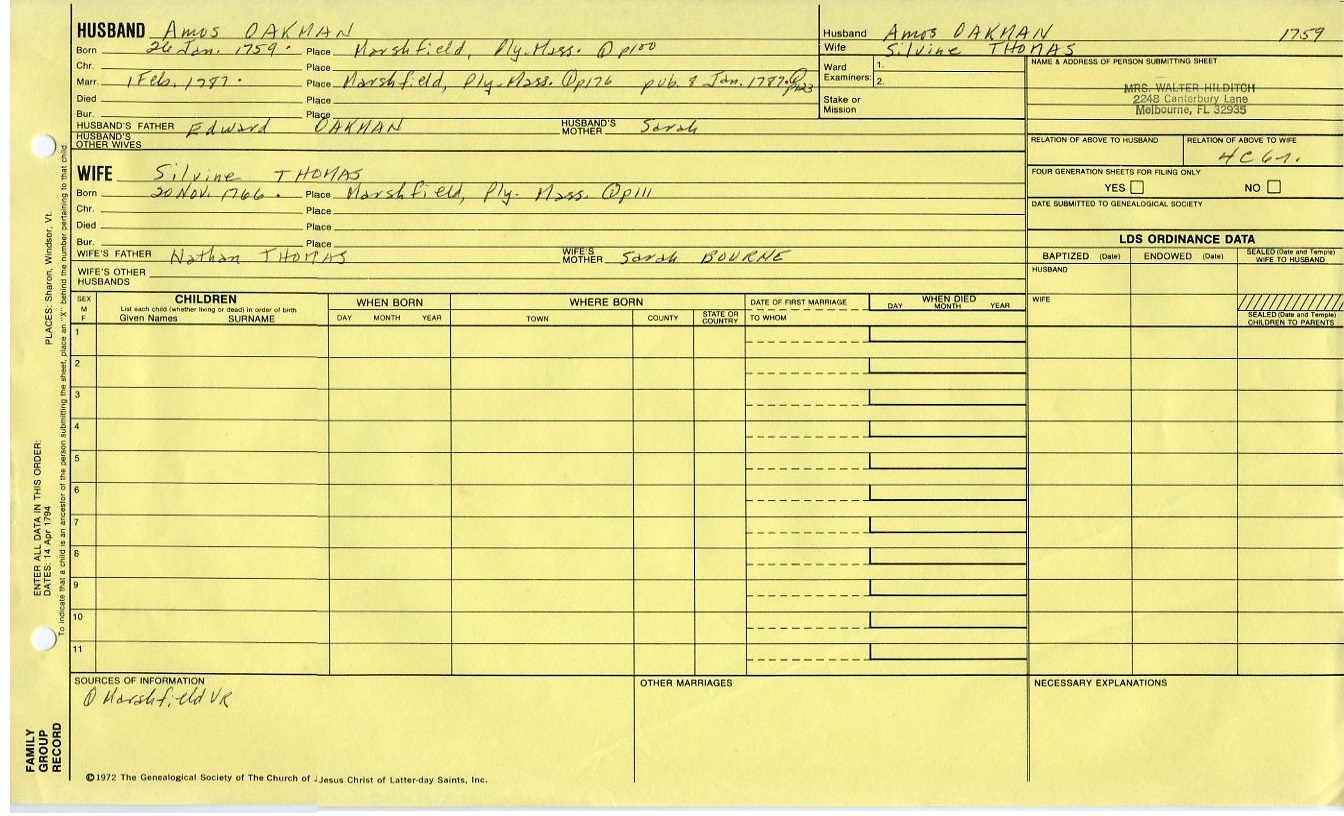 HUSBAND Amos OAKMAN
Born 26 Jan. 1759 Place Marshfield, Ply-Mass. ① p100
Chr. Place
Marr. 1 Feb. 1787 Place Marshfield, Ply-Mass. ① p176 pub. 8 Jan. 1787 ①
Died Place
Bur. Place
HUSBAND'S FATHER Edward OAKMAN HUSBAND'S MOTHER Sarah
HUSBAND'S OTHER WIVES
Husband Amos OAKMAN 1759
Wife Silvine THOMAS
Ward Examiners: 1.
2.
Stake or Mission
NAME & ADDRESS OF PERSON SUBMITTING SHEET
MRS. WALTER HILDITCH
2248 Canterbury Lane
Melbourne, FL 32935
RELATION OF ABOVE TO HUSBAND RELATION OF ABOVE TO WIFE
4C6r.
FOUR GENERATION SHEETS FOR FILING ONLY
YES NO
DATE SUBMITTED TO GENEALOGICAL SOCIETY
WIFE Silvine THOMAS
Born 20 Nov. 1766 Place Marshfield, Ply- Mass. ① p111
Chr. Place
Died Place
Bur. Place
WIFE'S FATHER Nathan THOMAS WIFE'S MOTHER Sarah BOURNE
WIFE'S OTHER HUSBANDS
LDS ORDINANCE DATA
BAPTIZED (Date) ENDOWED (Date) SEALED (Date and Temple) WIFE TO HUSBAND
HUSBAND
WIFE
SEALED (Date and Temple) CHILDREN TO PARENTS
SEX M F
CHILDREN
List each child (whether living or dead) in order of birth
Given Names SURNAME
WHEN BORN
DAY MONTH YEAR
WHERE BORN
TOWN COUNTY STATE OR COUNTRY
DATE OF FIRST MARRIAGE
TO WHOM
WHEN DIED
DAY MONTH YEAR
1
2
3
4
5
6
7
8
9
10
11
SOURCES OF INFORMATION
① Marshfield VR
OTHER MARRIAGES
NECESSARY EXPLANATIONS
©1972 The Genealogical Society of The Church of Jesus Christ of Latter-day Saints, Inc.
FAMILY GROUP RECORD
ENTER ALL DATA IN THIS ORDER:
DATES: 14 Apr 1794 PLACES: Sharon, Windsor, Vt.
To indicate that a child is an ancestor of the person submitting the sheet, place an "X" behind the number pertaining to that child.